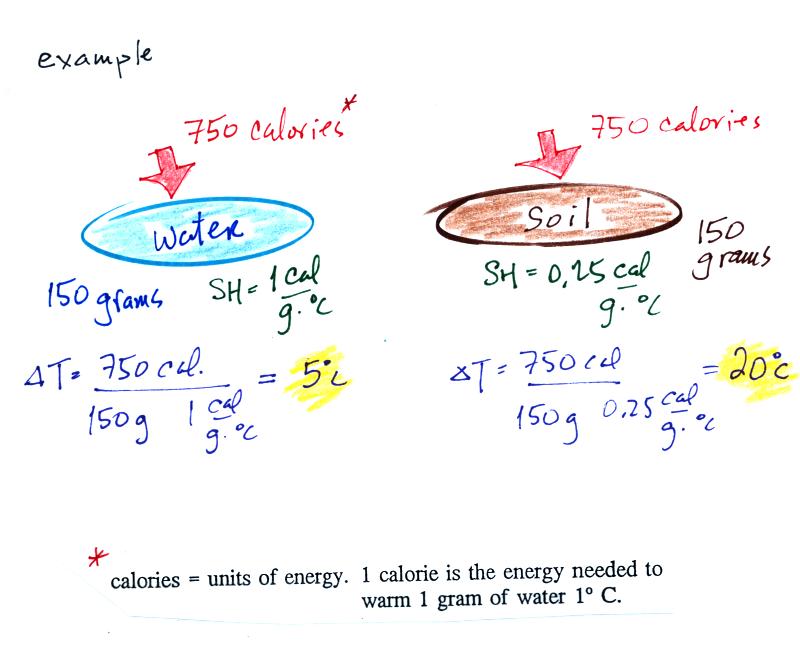 example
750 calories*
Water
150 grams
SH = 1 cal
g. °C
ΔT = 750 cal. = 5°C
150g 1 cal
g. °C
750 calories
Soil
150
grams
SH = 0,25 cal
g. °C
ΔT = 750 cal = 20°C
150g 0.25 cal
g. °C
* calories = units of energy. 1 calorie is the energy needed to
warm 1 gram of water 1° C.